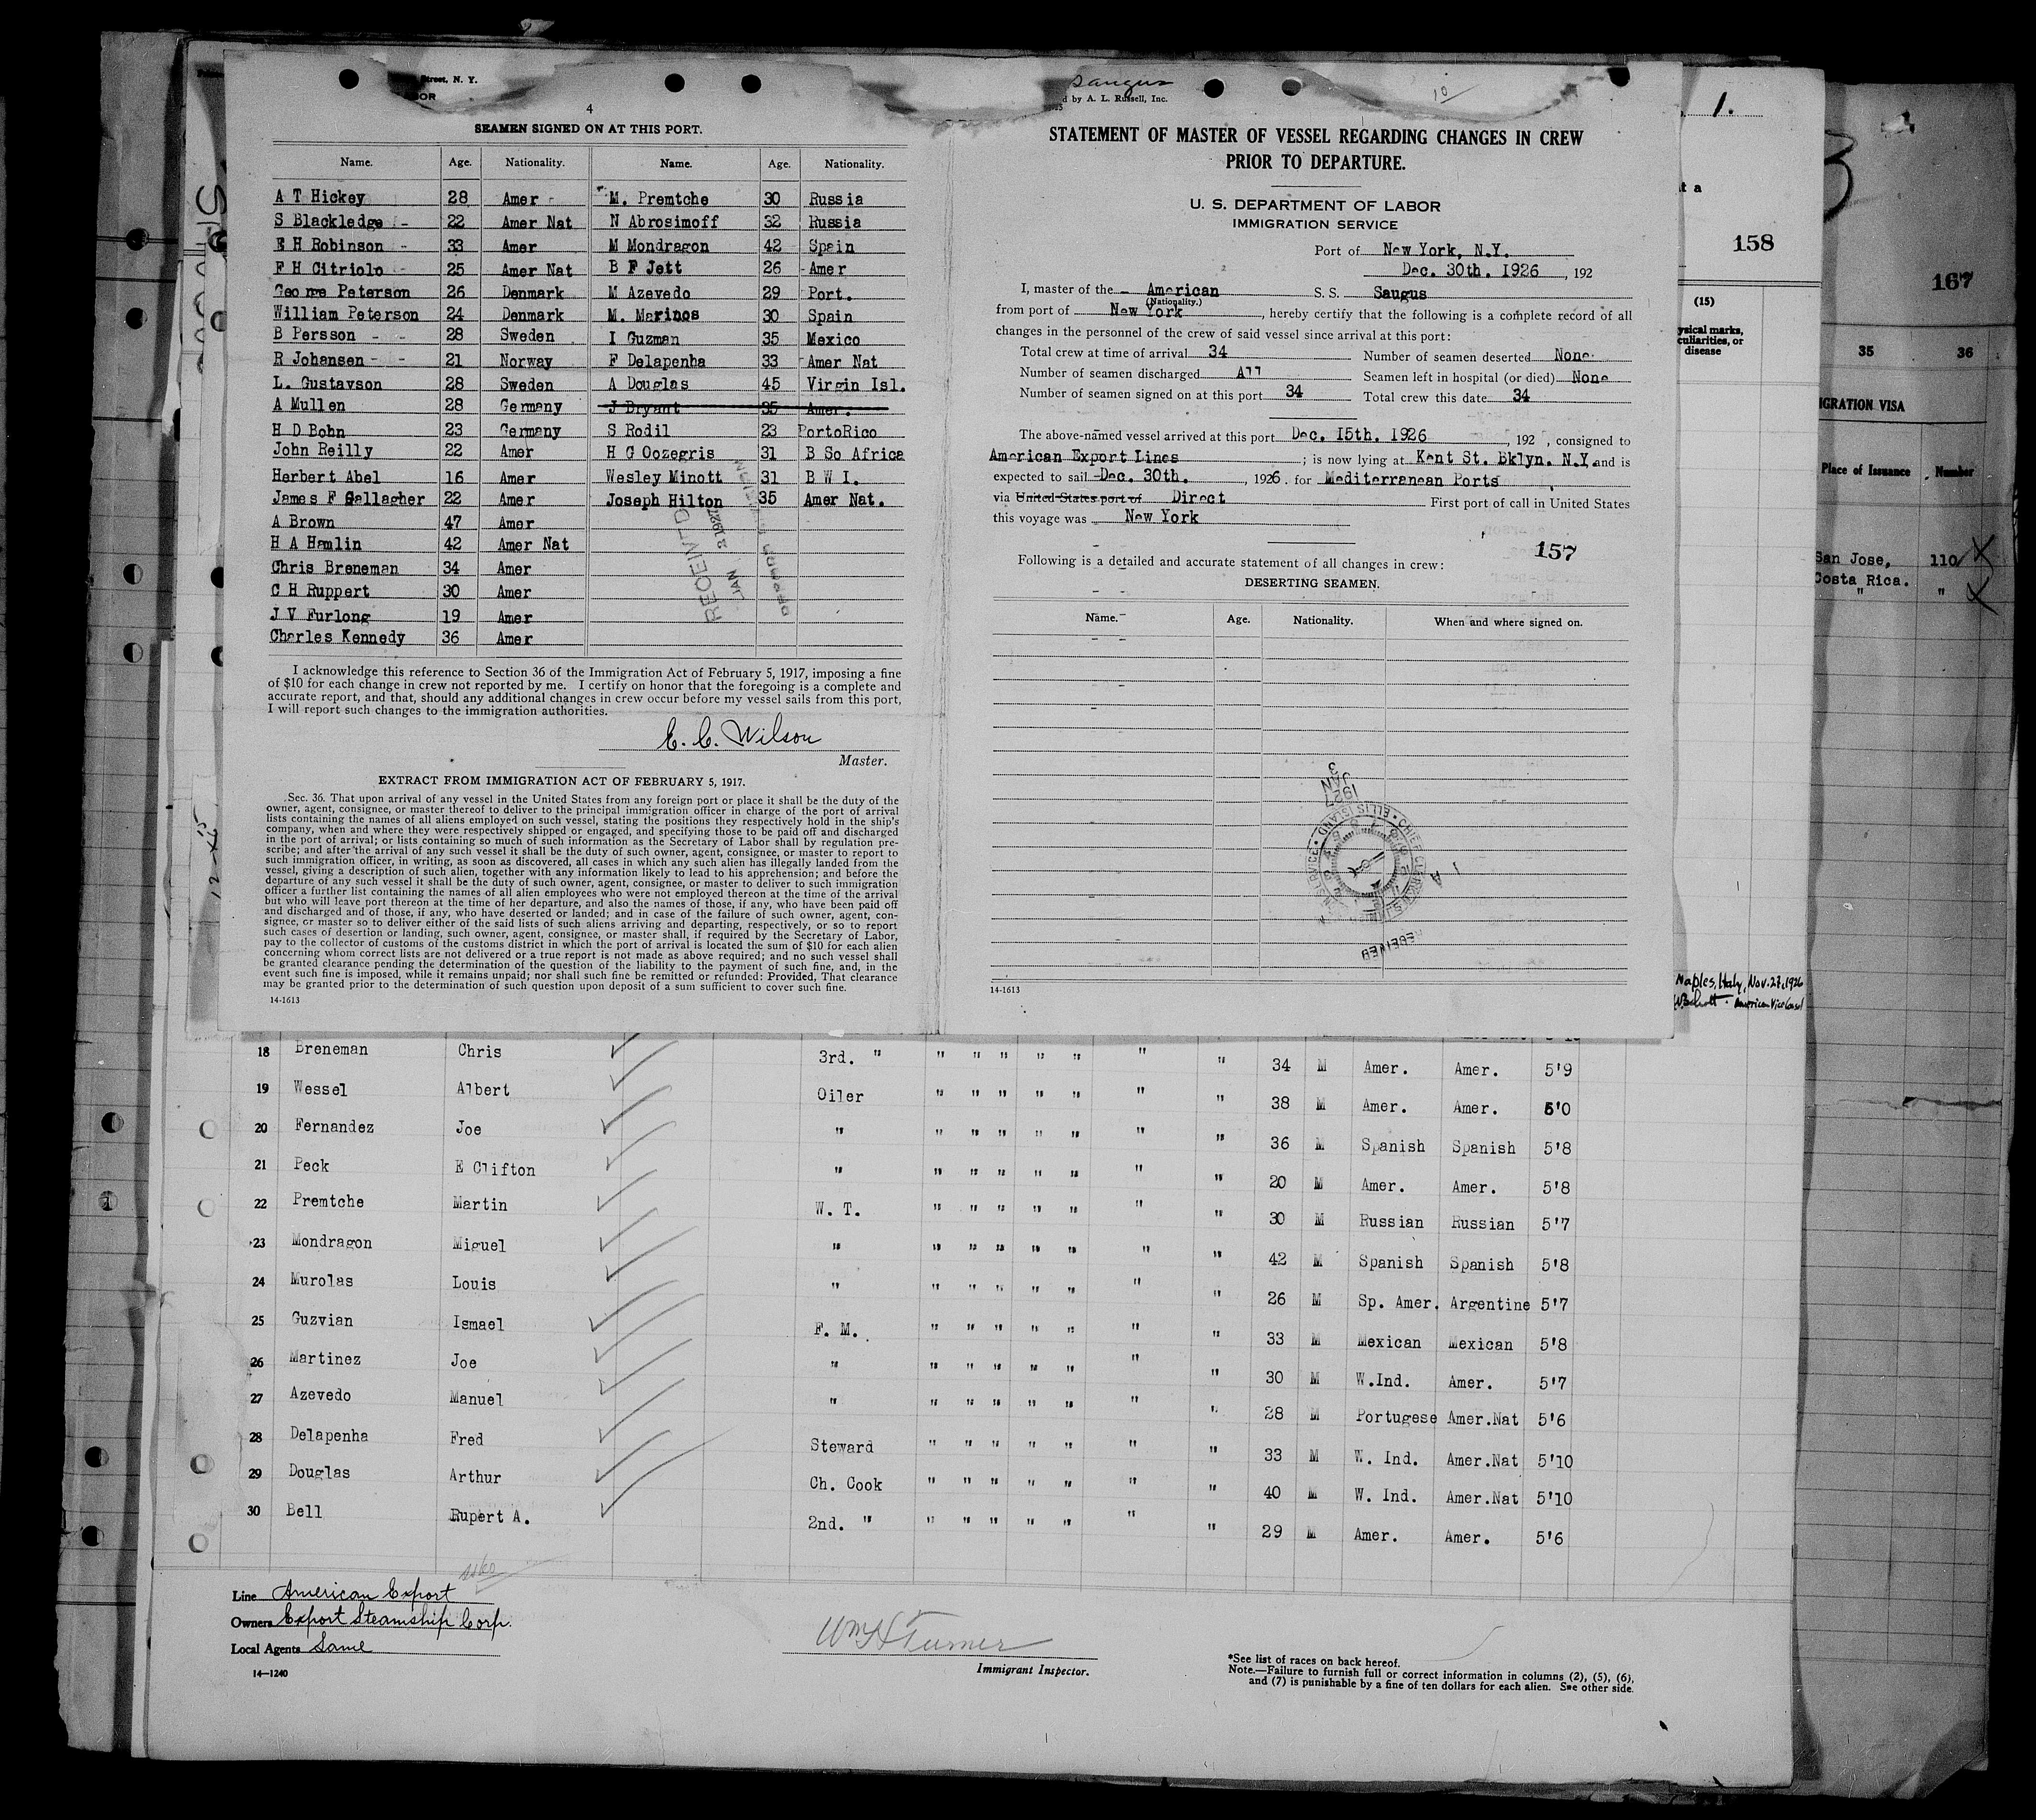 Street, N. Y.
4
SEAMEN SIGNED ON AT THIS PORT.
Name. Age. Nationality. Name. Age. Nationality.
A T Hickey 28 Amer M. Premtche 30 Russia
S Blackledge 22 Amer Nat N Abrosimoff 32 Russia
E H Robinson 33 Amer M Mondragon 42 Spain
F H Citriolo 25 Amer Nat B F Jett 26 Amer
George Peterson 26 Denmark M Azevedo 29 Port.
William Peterson 24 Denmark M. Marinos 30 Spain
B Persson 28 Sweden I Guzman 35 Mexico
R Johansen 21 Norway F Delapenha 33 Amer Nat
L. Gustavson 28 Sweden A Douglas 45 Virgin Isl.
A Mullen 28 Germany J Bryant 35 Amer.
H D Bohn 23 Germany S Rodil 23 PortoRico
John Reilly 22 Amer H G Oozegris 31 B So Africa
Herbert Abel 16 Amer Wesley Minott 31 B W I.
James F Gallagher 22 Amer Joseph Hilton 35 Amer Nat.
A Brown 47 Amer
H A Hamlin 42 Amer Nat
Chris Breneman 34 Amer
C H Ruppert 30 Amer
J V Furlong 19 Amer
Charles Kennedy 36 Amer
RECEIVED
JAN 3 1927
I acknowledge this reference to Section 36 of the Immigration Act of February 5, 1917, imposing a fine
of $10 for each change in crew not reported by me. I certify on honor that the foregoing is a complete and
accurate report, and that, should any additional changes in crew occur before my vessel sails from this port,
I will report such changes to the immigration authorities.
E. C. Wilson
Master.
EXTRACT FROM IMMIGRATION ACT OF FEBRUARY 5, 1917.
Sec. 36. That upon arrival of any vessel in the United States from any foreign port or place it shall be the duty of the
owner, agent, consignee, or master thereof to deliver to the principal immigration officer in charge of the port of arrival
lists containing the names of all aliens employed on such vessel, stating the positions they respectively hold in the ship's
company, when and where they were respectively shipped or engaged, and specifying those to be paid off and discharged
in the port of arrival; or lists containing so much of such information as the Secretary of Labor shall by regulation pre-
scribe; and after the arrival of any such vessel it shall be the duty of such owner, agent, consignee, or master to report to
such immigration officer, in writing, as soon as discovered, all cases in which any such alien has illegally landed from the
vessel, giving a description of such alien, together with any information likely to lead to his apprehension; and before the
departure of any such vessel it shall be the duty of such owner, agent, consignee, or master to deliver to such immigration
officer a further list containing the names of all alien employees who were not employed thereon at the time of the arrival
but who will leave port thereon at the time of her departure, and also the names of those, if any, who have been paid off
and discharged and of those, if any, who have deserted or landed; and in case of the failure of such owner, agent, con-
signee, or master so to deliver either of the said lists of such aliens arriving and departing, respectively, or so to report
such cases of desertion or landing, such owner, agent, consignee, or master shall, if required by the Secretary of Labor,
pay to the collector of customs of the customs district in which the port of arrival is located the sum of $10 for each alien
concerning whom correct lists are not delivered or a true report is not made as above required; and no such vessel shall
be granted clearance pending the determination of the question of the liability to the payment of such fine, and, in the
event such fine is imposed, while it remains unpaid; nor shall such fine be remitted or refunded: Provided, That clearance
may be granted prior to the determination of such question upon deposit of a sum sufficient to cover such fine.
14-1613
Saugus
d by A. L. Russell, Inc.
10
STATEMENT OF MASTER OF VESSEL REGARDING CHANGES IN CREW
PRIOR TO DEPARTURE.
U. S. DEPARTMENT OF LABOR
IMMIGRATION SERVICE
Port of New York, N.Y.
Dec. 30th. 1926, 192
I, master of the American S. S. Saugus
(Nationality.)
from port of New York, hereby certify that the following is a complete record of all
changes in the personnel of the crew of said vessel since arrival at this port:
Total crew at time of arrival 34 Number of seamen deserted None
Number of seamen discharged All Seamen left in hospital (or died) None
Number of seamen signed on at this port 34 Total crew this date 34
The above-named vessel arrived at this port Dec. 15th. 1926, 192 , consigned to
American Export Lines; is now lying at Kent St. Bklyn. N.Y. and is
expected to sail Dec. 30th., 1926. for Mediterranean Ports
via United States port of Direct First port of call in United States
this voyage was New York
157
Following is a detailed and accurate statement of all changes in crew:
DESERTING SEAMEN.
Name. Age. Nationality. When and where signed on.
JAN 3
1927
ELLIS ISLAND
CHIEF CLERK
RECEIVED
14-1613
1.
t a
158
(15)
ysical marks,
culiarities, or
disease
Naples, Italy, Nov. 27, 1926
American Vice Consul
167
35 36
IGRATION VISA
Place of Issuance Number
San Jose, 110
Costa Rica.
" "
18 Breneman Chris 3rd. " " " " " " " " 34 M Amer. Amer. 5'9
19 Wessel Albert Oiler " " " " " " " 38 M Amer. Amer. 5'0
20 Fernandez Joe " " " " " " " " 36 M Spanish Spanish 5'8
21 Peck E Clifton " " " " " " " " 20 M Amer. Amer. 5'8
22 Premtche Martin W. T. " " " " " " " 30 M Russian Russian 5'7
23 Mondragon Miguel " " " " " " " " 42 M Spanish Spanish 5'8
24 Murolas Louis " " " " " " " " 26 M Sp. Amer. Argentine 5'7
25 Guzvian Ismael F. M. " " " " " " " 33 M Mexican Mexican 5'8
26 Martinez Joe " " " " " " " " 30 M W.Ind. Amer. 5'7
27 Azevedo Manuel " " " " " " " " 28 M Portugese Amer.Nat 5'6
28 Delapenha Fred Steward " " " " " " " 33 M W. Ind. Amer.Nat 5'10
29 Douglas Arthur Ch. Cook " " " " " " " 40 M W. Ind. Amer.Nat 5'10
30 Bell Rupert A. 2nd. " " " " " " " " 29 M Amer. Amer. 5'6
Line American Export
Owners Export Steamship Corp.
Local Agents Same
14—1240
Wm H Turner
Immigrant Inspector.
*See list of races on back hereof.
Note.—Failure to furnish full or correct information in columns (2), (5), (6),
and (7) is punishable by a fine of ten dollars for each alien. See other side.